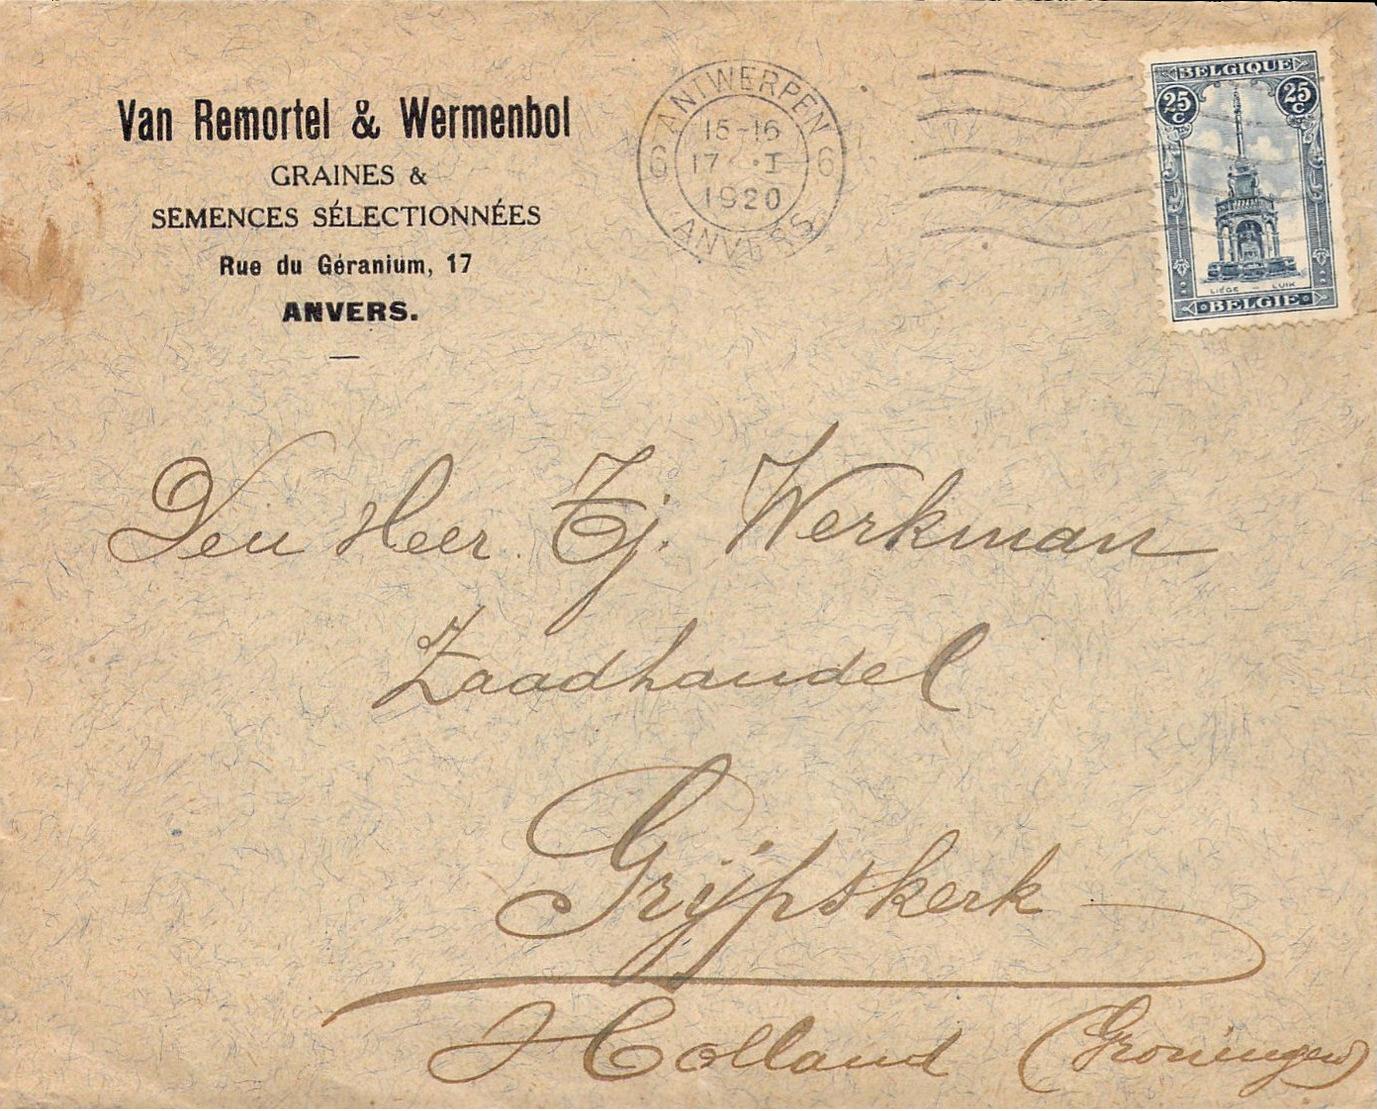 Van Remortel & Wermenbol
GRAINES &
SEMENCES SÉLECTIONNÉES
Rue du Géranium, 17
ANVERS.
ANTWERPEN
6 6
15-16
17 · I
1920
ANVERS
BELGIQUE
25 c
25 c
LIÉGE - LUIK
BELGIE
Den Heer Tj. Werkman
Zaadhandel
Grijpskerk
Holland (Groningen)